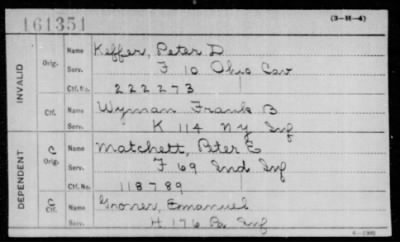 161351
(3-H-4)
INVALID
Orig. Name Keffer, Peter D
Serv. F 10 Ohio Cav
Ctf. No. 222273
Ctf. Name Wyman Frank B
Serv. K 114 NY Inf
DEPENDENT
C Orig. Name Matchett, Peter E
Serv. F 69 Ind Inf
Ctf. No. 118789
C Ctf. Name Groner, Emanuel
Serv. H 176 Pa Inf